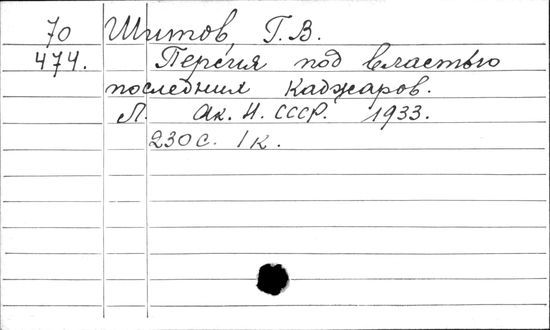 70 Шитов Г. В.
474. Персия под властью
последних Каджаров.
Л. Ак. Н. СССР. 1933.
230 с. 1 к.